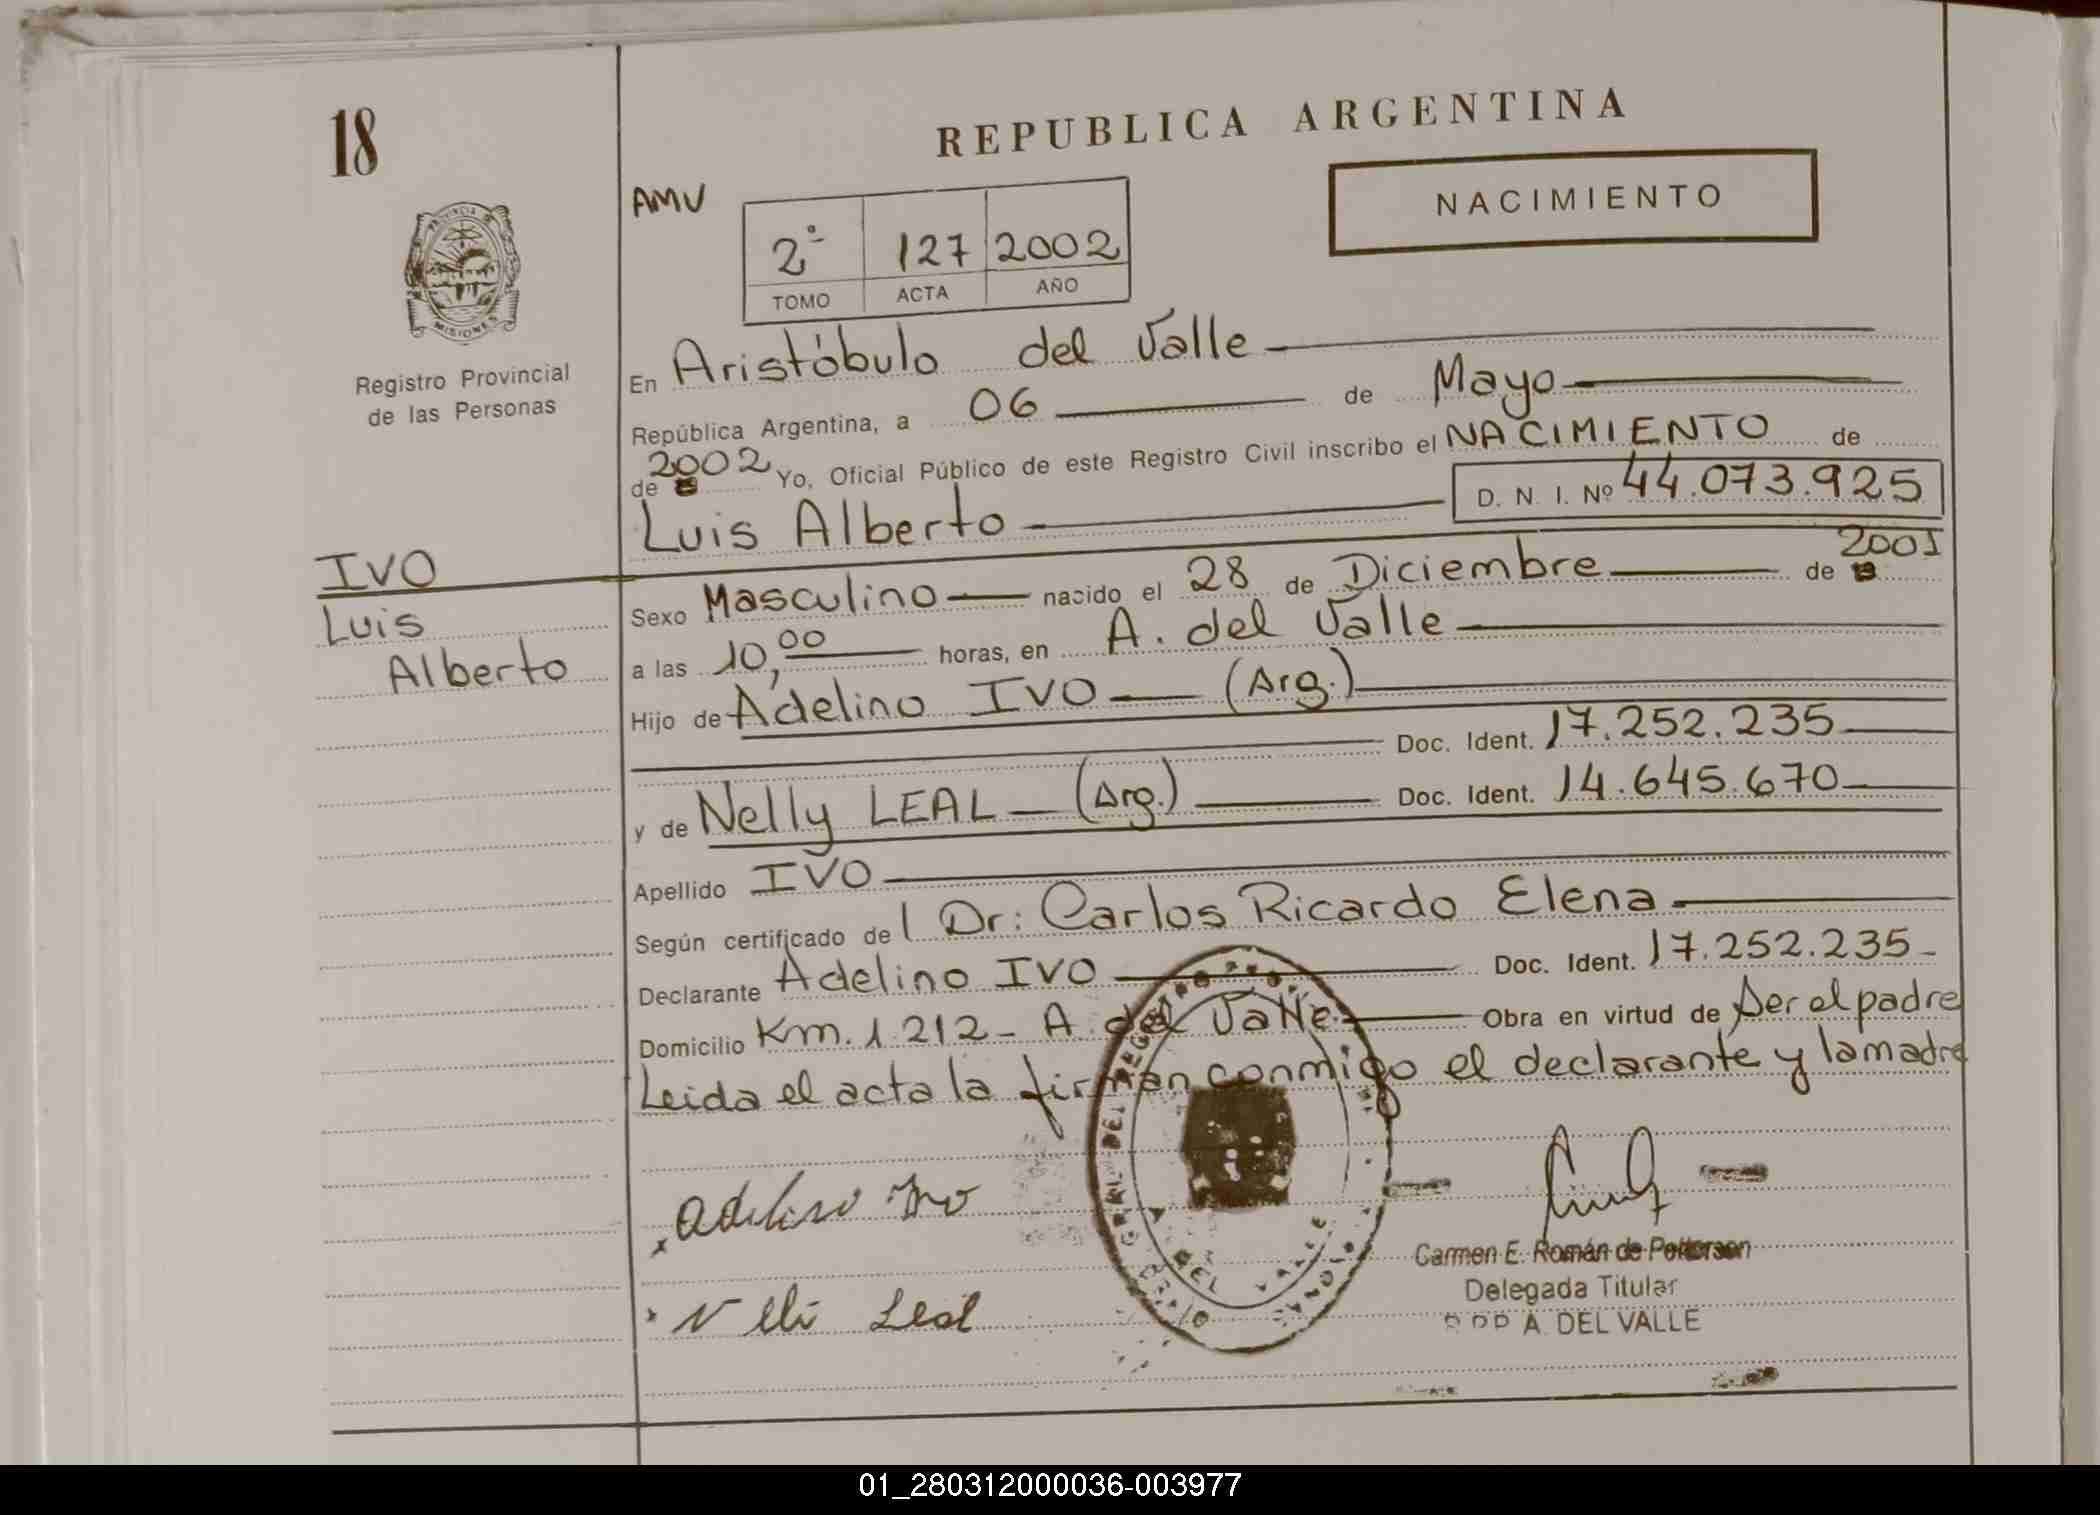 18
REPUBLICA ARGENTINA
AMV
NACIMIENTO
2º 127 2002
TOMO ACTA AÑO
PROVINCIA DE MISIONES
Registro Provincial
de las Personas
En Aristóbulo del Valle
República Argentina, a 06 de Mayo
de 2002 Yo, Oficial Público de este Registro Civil inscribo el NACIMIENTO de
Luis Alberto D. N. I. Nº 44.073.925
IVO
Luis
Alberto
Sexo Masculino nacido el 28 de Diciembre de 2001
a las 10,00 horas, en A. del Valle
Hijo de Adelino IVO (Arg.)
Doc. Ident. 17.252.235
y de Nelly LEAL (Arg.) Doc. Ident. 14.645.670
Apellido IVO
Según certificado del Dr: Carlos Ricardo Elena
Declarante Adelino IVO Doc. Ident. 17.252.235
Domicilio Km. 1.212 - A. del Valle Obra en virtud de Ser el padre
Leida el acta la firman conmigo el declarante y la madre
x Adelino Ivo
x Nelli Leal
Carmen E. Román de
Delegada Titular
A. DEL VALLE
01_280312000036-003977